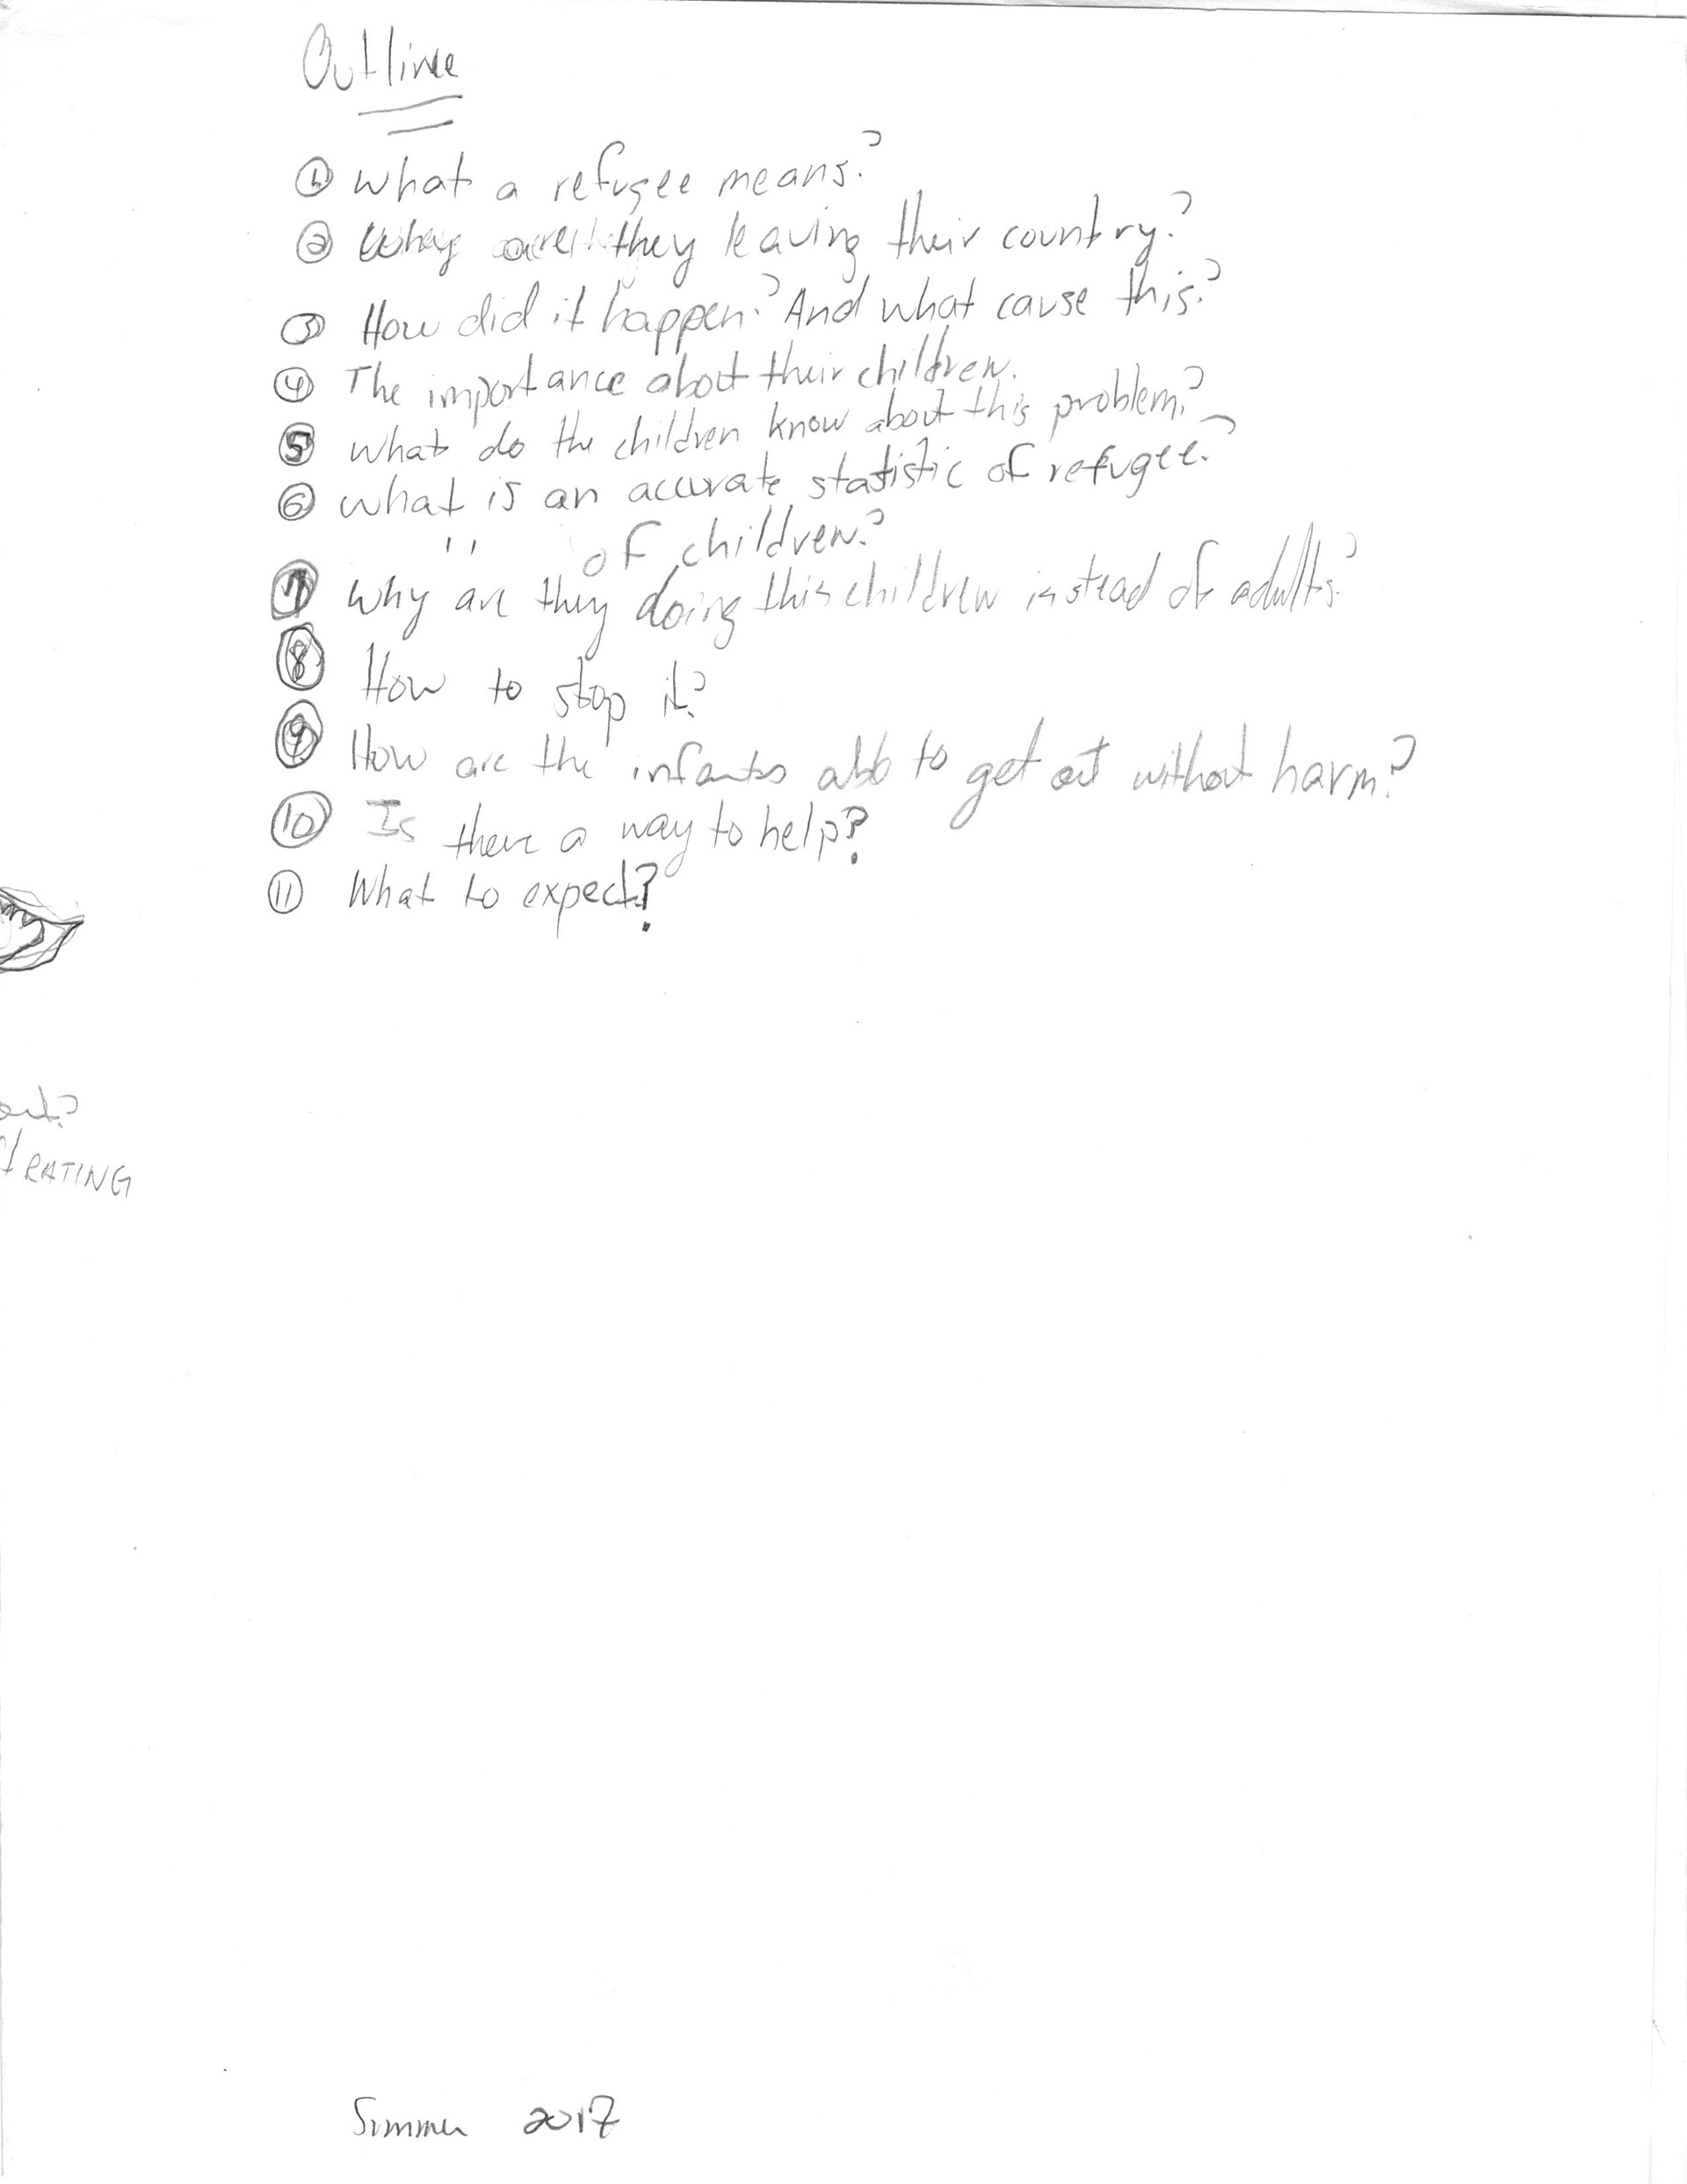 Outline
① What a refugee means?
② Why are they leaving their country?
③ How did it happen? And what cause this?
④ The importance about their children.
⑤ What do the children know about this problem?
⑥ What is an accurate statistic of refugee?
" of children?
⑦ Why are they doing this children instead of adults?
⑧ How to stop it?
⑨ How are the infants able to get out without harm?
⑩ Is there a way to help?
⑪ What to expect?
RATING
Summer 2017